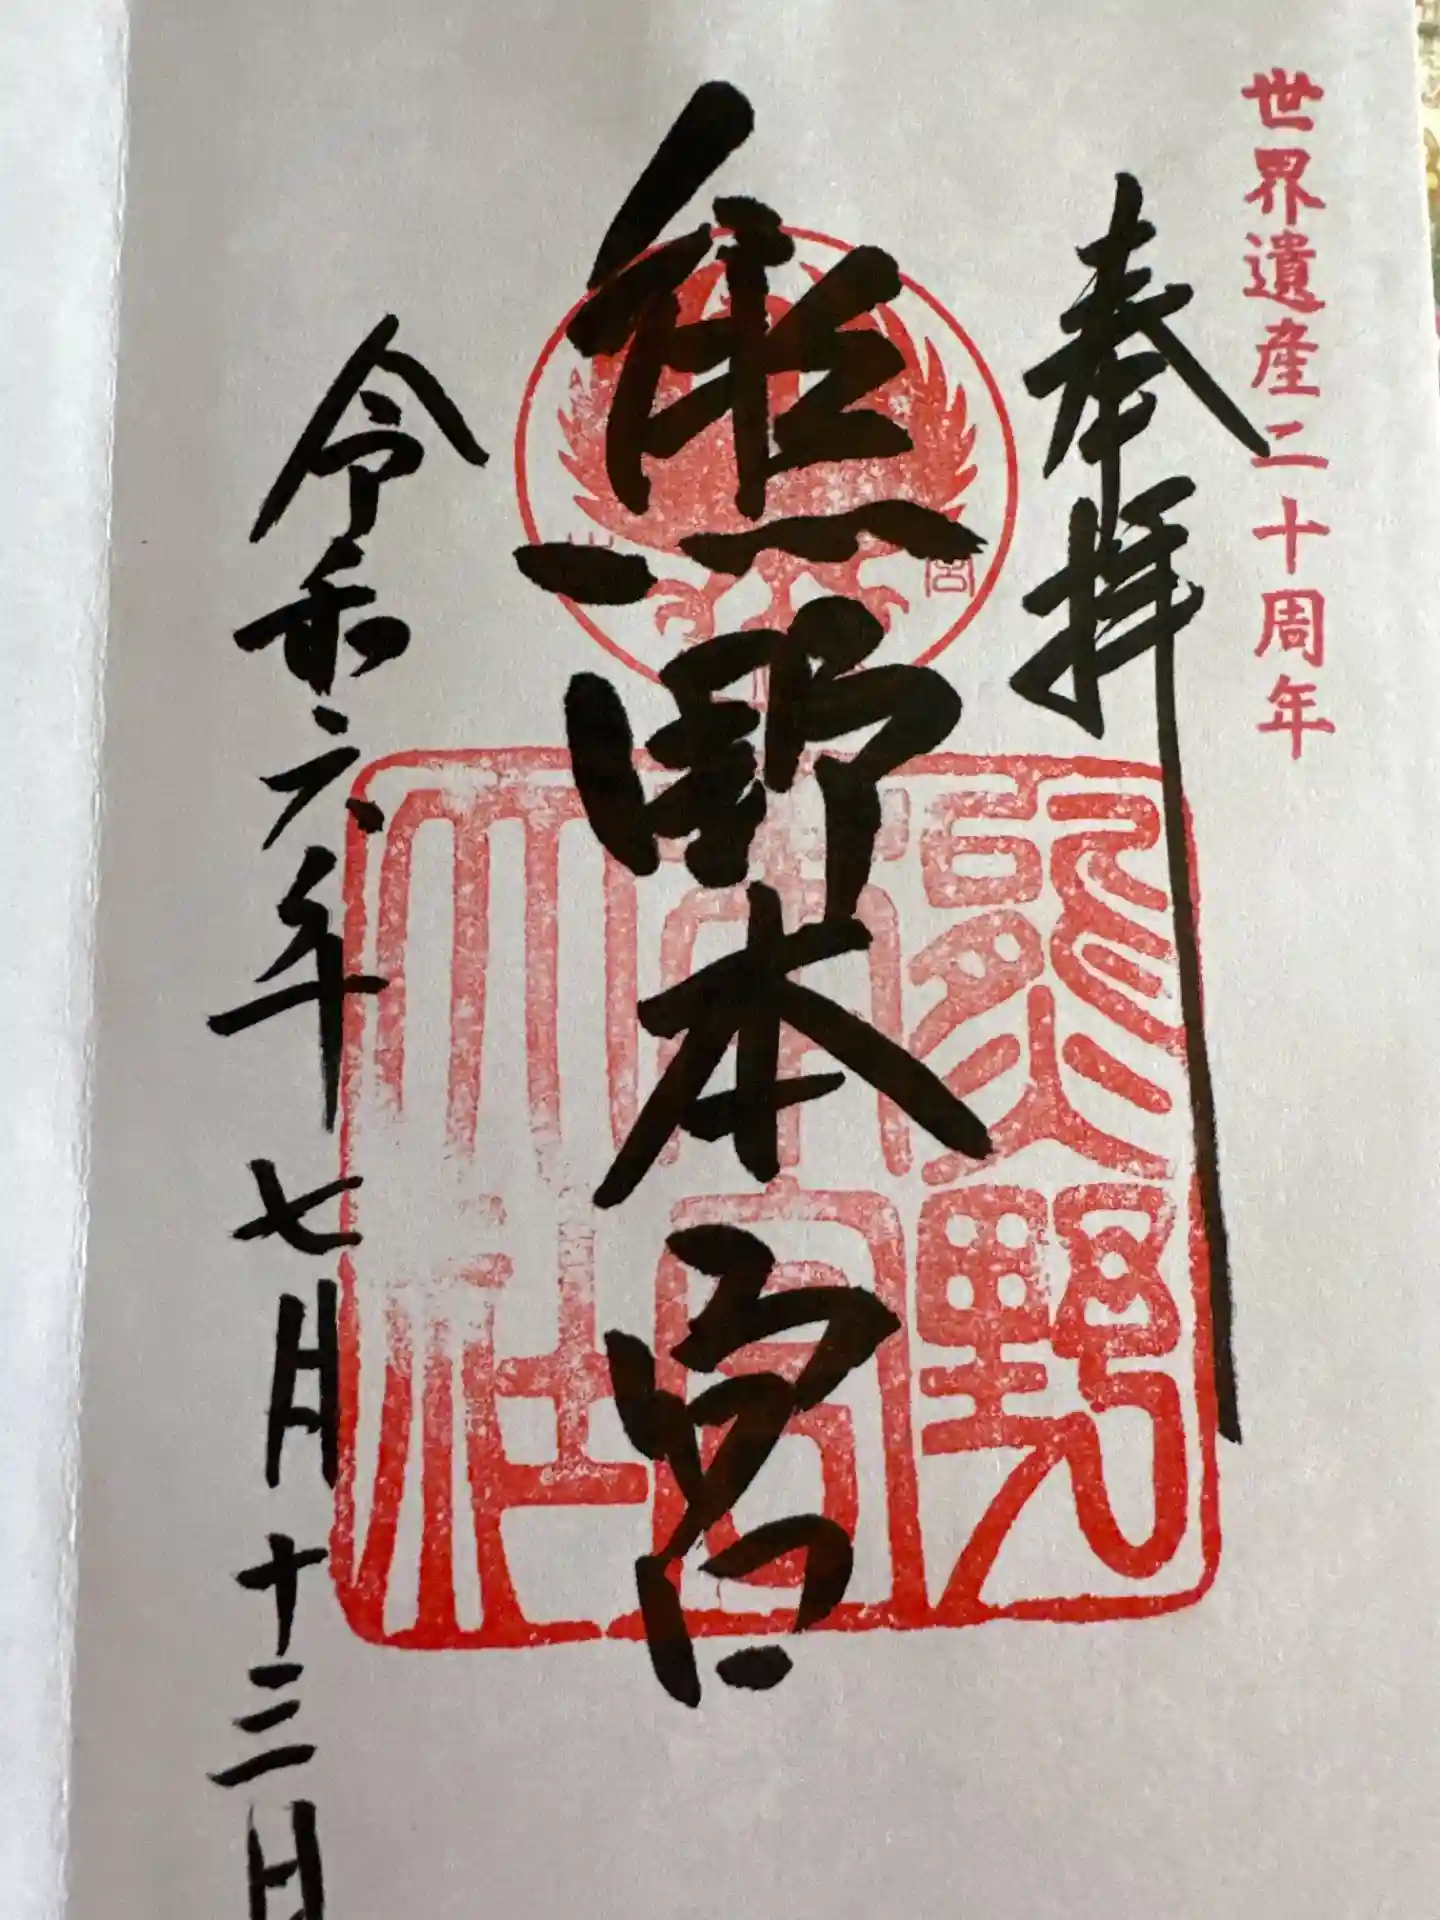 世界遺産二十周年
奉拝
熊野本宮
熊野
本宮
大社
令和六年七月十三日